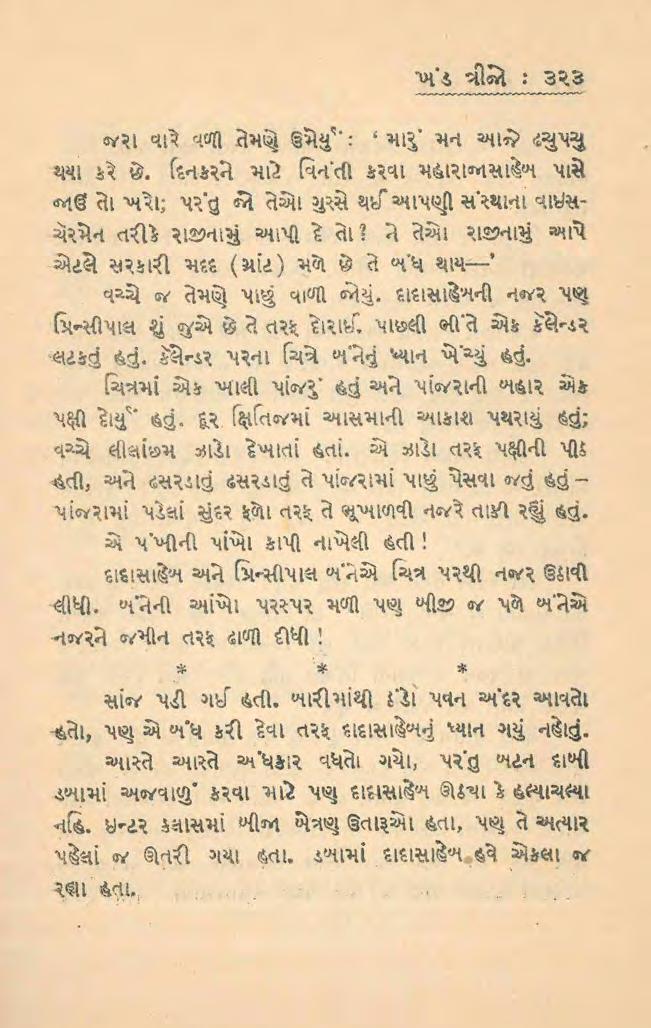 ખંડ ત્રીજો : ૩૨૩
જરા વારે વળી તેમણે ઉમેર્યું : ‘ મારું મન આજે ઢચુપચુ
થયા કરે છે. દિનકરને માટે વિનંતી કરવા મહારાજાસાહેબ પાસે
જાઉં તો ખરો; પરંતુ જો તેઓ ગુસ્સે થઈ આપણી સંસ્થાના વાઇસ-
ચૅરમેન તરીકે રાજીનામું આપી દે તો? ને તેઓ રાજીનામું આપે
એટલે સરકારી મદદ (ગ્રાંટ) મળે છે તે બંધ થાય—’
વચ્ચે જ તેમણે પાછું વાળી જોયું. દાદાસાહેબની નજર પણ
પ્રિન્સીપાલ શું જુએ છે તે તરફ દોરાઈ. પાછલી ભીંતે એક કૅલેન્ડર
લટકતું હતું. કૅલેન્ડર પરના ચિત્રે બંનેનું ધ્યાન ખેંચ્યું હતું.
ચિત્રમાં એક ખાલી પાંજરું હતું અને પાંજરાની બહાર એક
પક્ષી દોર્યું હતું. દૂર ક્ષિતિજમાં આસમાની આકાશ પથરાયું હતું;
વચ્ચે લીલાંછમ ઝાડો દેખાતાં હતાં. એ ઝાડો તરફ પક્ષીની પીઠ
હતી, અને ઢસરડાતું ઢસરડાતું તે પાંજરામાં પાછું પેસવા જતું હતું –
પાંજરામાં પડેલાં સુંદર ફળો તરફ તે ભૂખાળવી નજરે તાકી રહ્યું હતું.
એ પંખીની પાંખો કાપી નાખેલી હતી !
દાદાસાહેબ અને પ્રિન્સીપાલ બંનેએ ચિત્ર પરથી નજર ઉઠાવી
લીધી. બંનેની આંખો પરસ્પર મળી પણ બીજી જ પળે બંનેએ
નજરને જમીન તરફ ઢાળી દીધી !
* * *
સાંજ પડી ગઈ હતી. બારીમાંથી ઠંડો પવન અંદર આવતો
હતો, પણ એ બંધ કરી દેવા તરફ દાદાસાહેબનું ધ્યાન ગયું નહોતું.
આસ્તે આસ્તે અંધકાર વધતો ગયો, પરંતુ બટન દાબી
ડબામાં અજવાળું કરવા માટે પણ દાદાસાહેબ ઊઠ્યા કે હલ્યાચલ્યા
નહિ. ઇન્ટર ક્લાસમાં બીજા બેત્રણ ઉતારૂઓ હતા, પણ તે અત્યાર
પહેલાં જ ઊતરી ગયા હતા. ડબામાં દાદાસાહેબ હવે એકલા જ
રહ્યા હતા.